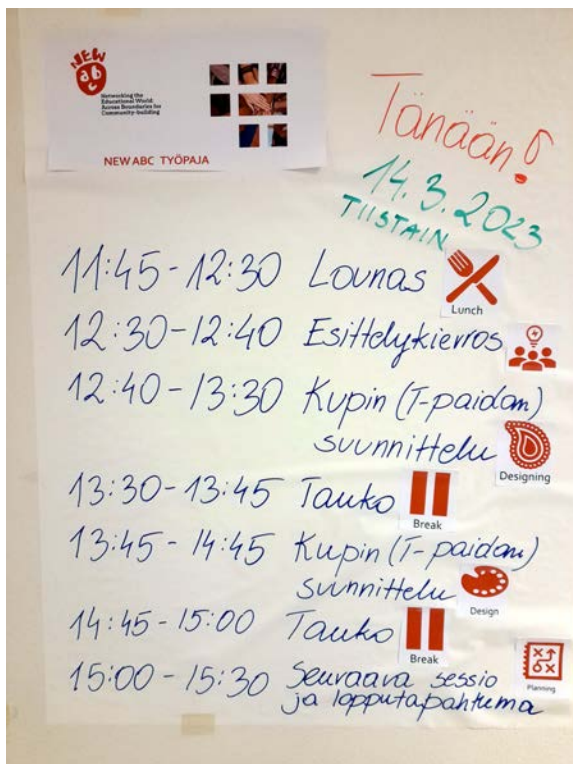 NEW
abc
Networking the
Educational World:
Across Boundaries for
Community-building
NEW ABC TYÖPAJA
Tänään!
14.3.2023
TIISTAIN
11:45-12:30 Lounas
Lunch
12:30-12:40 Esittelykierros
12:40-13:30 Kupin (T-paidan)
suunnittelu
Designing
13:30-13:45 Tauko
Break
13:45-14:45 Kupin (T-paidan)
suunnittelu
Design
14:45-15:00 Tauko
Break
15:00-15:30 Seuraava sessio
ja lopputapahtuma
Planning